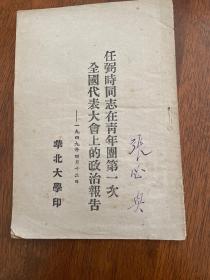 任弼時同志在靑年團第一次
全國代表大會上的政治報吿
——一九四九年四月十二日
華北大學印
張